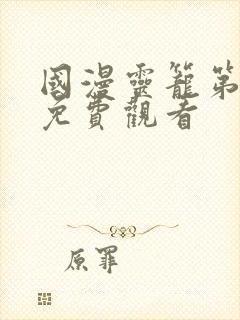 國漫靈籠第
免費觀看
原罪